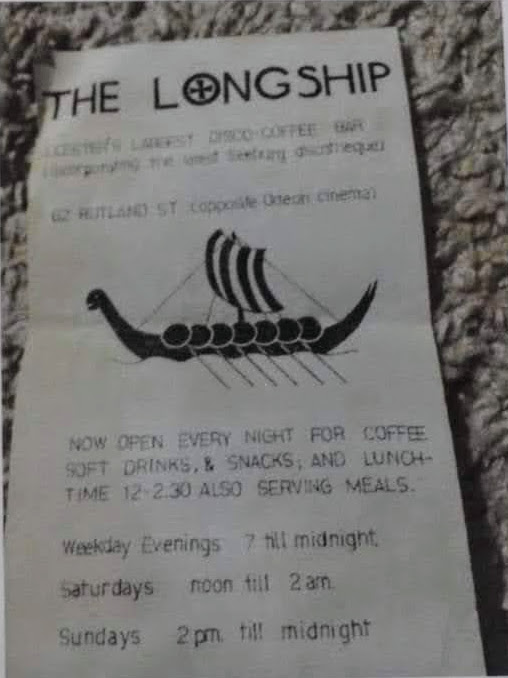 THE LONGSHIP
LARGEST DISCO-COFFEE BAR
(incorporating the latest Seeburg discotheque)
62 RUTLAND ST (opposite Odeon cinema)
NOW OPEN EVERY NIGHT FOR COFFEE
SOFT DRINKS, & SNACKS; AND LUNCH-
TIME 12-2.30 ALSO SERVING MEALS.
Weekday Evenings 7 till midnight.
Saturdays noon till 2 am.
Sundays 2 pm. till midnight